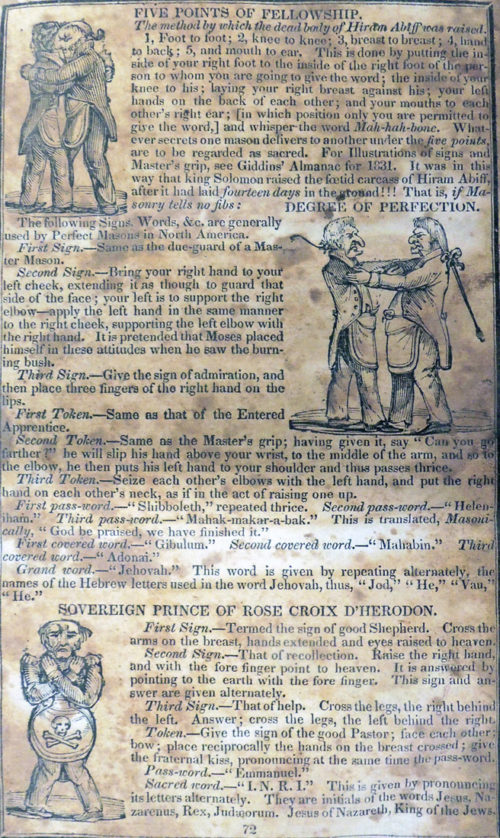 FIVE POINTS OF FELLOWSHIP.
The method by which the dead body of Hiram Abiff was raised.
1, Foot to foot; 2, knee to knee; 3, breast to breast; 4, hand
to back; 5, and mouth to ear. This is done by putting the in-
side of your right foot to the inside of the right foot of the per-
son to whom you are going to give the word; the inside of your
knee to his; laying your right breast against his; your left
hands on the back of each other; and your mouths to each
other's right ear; [in which position only you are permitted to
give the word,] and whisper the word Mah-hah-bone. What-
ever secrets one mason delivers to another under the five points,
are to be regarded as sacred. For Illustrations of signs and
Master's grip, see Giddins' Almanac for 1831. It was in this
way that king Solomon raised the fœtid carcass of Hiram Abiff,
after it had laid fourteen days in the ground!!! That is, if Ma-
sonry tells no fibs:
DEGREE OF PERFECTION.
The following Signs, Words, &c. are generally
used by Perfect Masons in North America.
First Sign.—Same as the due-guard of a Mas-
ter Mason.
Second Sign.—Bring your right hand to your
left cheek, extending it as though to guard that
side of the face; your left is to support the right
elbow—apply the left hand in the same manner
to the right cheek, supporting the left elbow with
the right hand. It is pretended that Moses placed
himself in these attitudes when he saw the burn-
ing bush.
Third Sign.—Give the sign of admiration, and
then place three fingers of the right hand on the
lips.
First Token.—Same as that of the Entered
Apprentice.
Second Token.—Same as the Master's grip; having given it, say "Can you go
farther?" he will slip his hand above your wrist, to the middle of the arm, and so to
the elbow, he then puts his left hand to your shoulder and thus passes thrice.
Third Token.—Seize each other's elbows with the left hand, and put the right
hand on each other's neck, as if in the act of raising one up.
First pass-word.—"Shibboleth," repeated thrice. Second pass-word.—"Helen-
ham." Third pass-word.—"Mahak-makar-a-bak." This is translated, Masoni-
cally, "God be praised, we have finished it."
First covered word.—"Gibulum." Second covered word.—"Mahabin." Third
covered word.—"Adonai."
Grand word.—"Jehovah." This word is given by repeating alternately, the
names of the Hebrew letters used in the word Jehovah, thus, "Jod," "He," "Vau,"
"He."
SOVEREIGN PRINCE OF ROSE CROIX D'HERODON.
First Sign.—Termed the sign of good Shepherd. Cross the
arms on the breast, hands extended and eyes raised to heaven.
Second Sign.—That of recollection. Raise the right hand,
and with the fore finger point to heaven. It is answered by
pointing to the earth with the fore finger. This sign and an-
swer are given alternately.
Third Sign.—That of help. Cross the legs, the right behind
the left. Answer; cross the legs, the left behind the right.
Token.—Give the sign of the good Pastor; face each other;
bow; place reciprocally the hands on the breast crossed; give
the fraternal kiss, pronouncing at the same time the pass-word.
Pass-word.—"Emmanuel."
Sacred word.—"I. N. R. I." This is given by pronouncing
its letters alternately. They are initials of the words Jesus, Na-
zarenus, Rex, Judæorum. Jesus of Nazareth, King of the Jews.
72